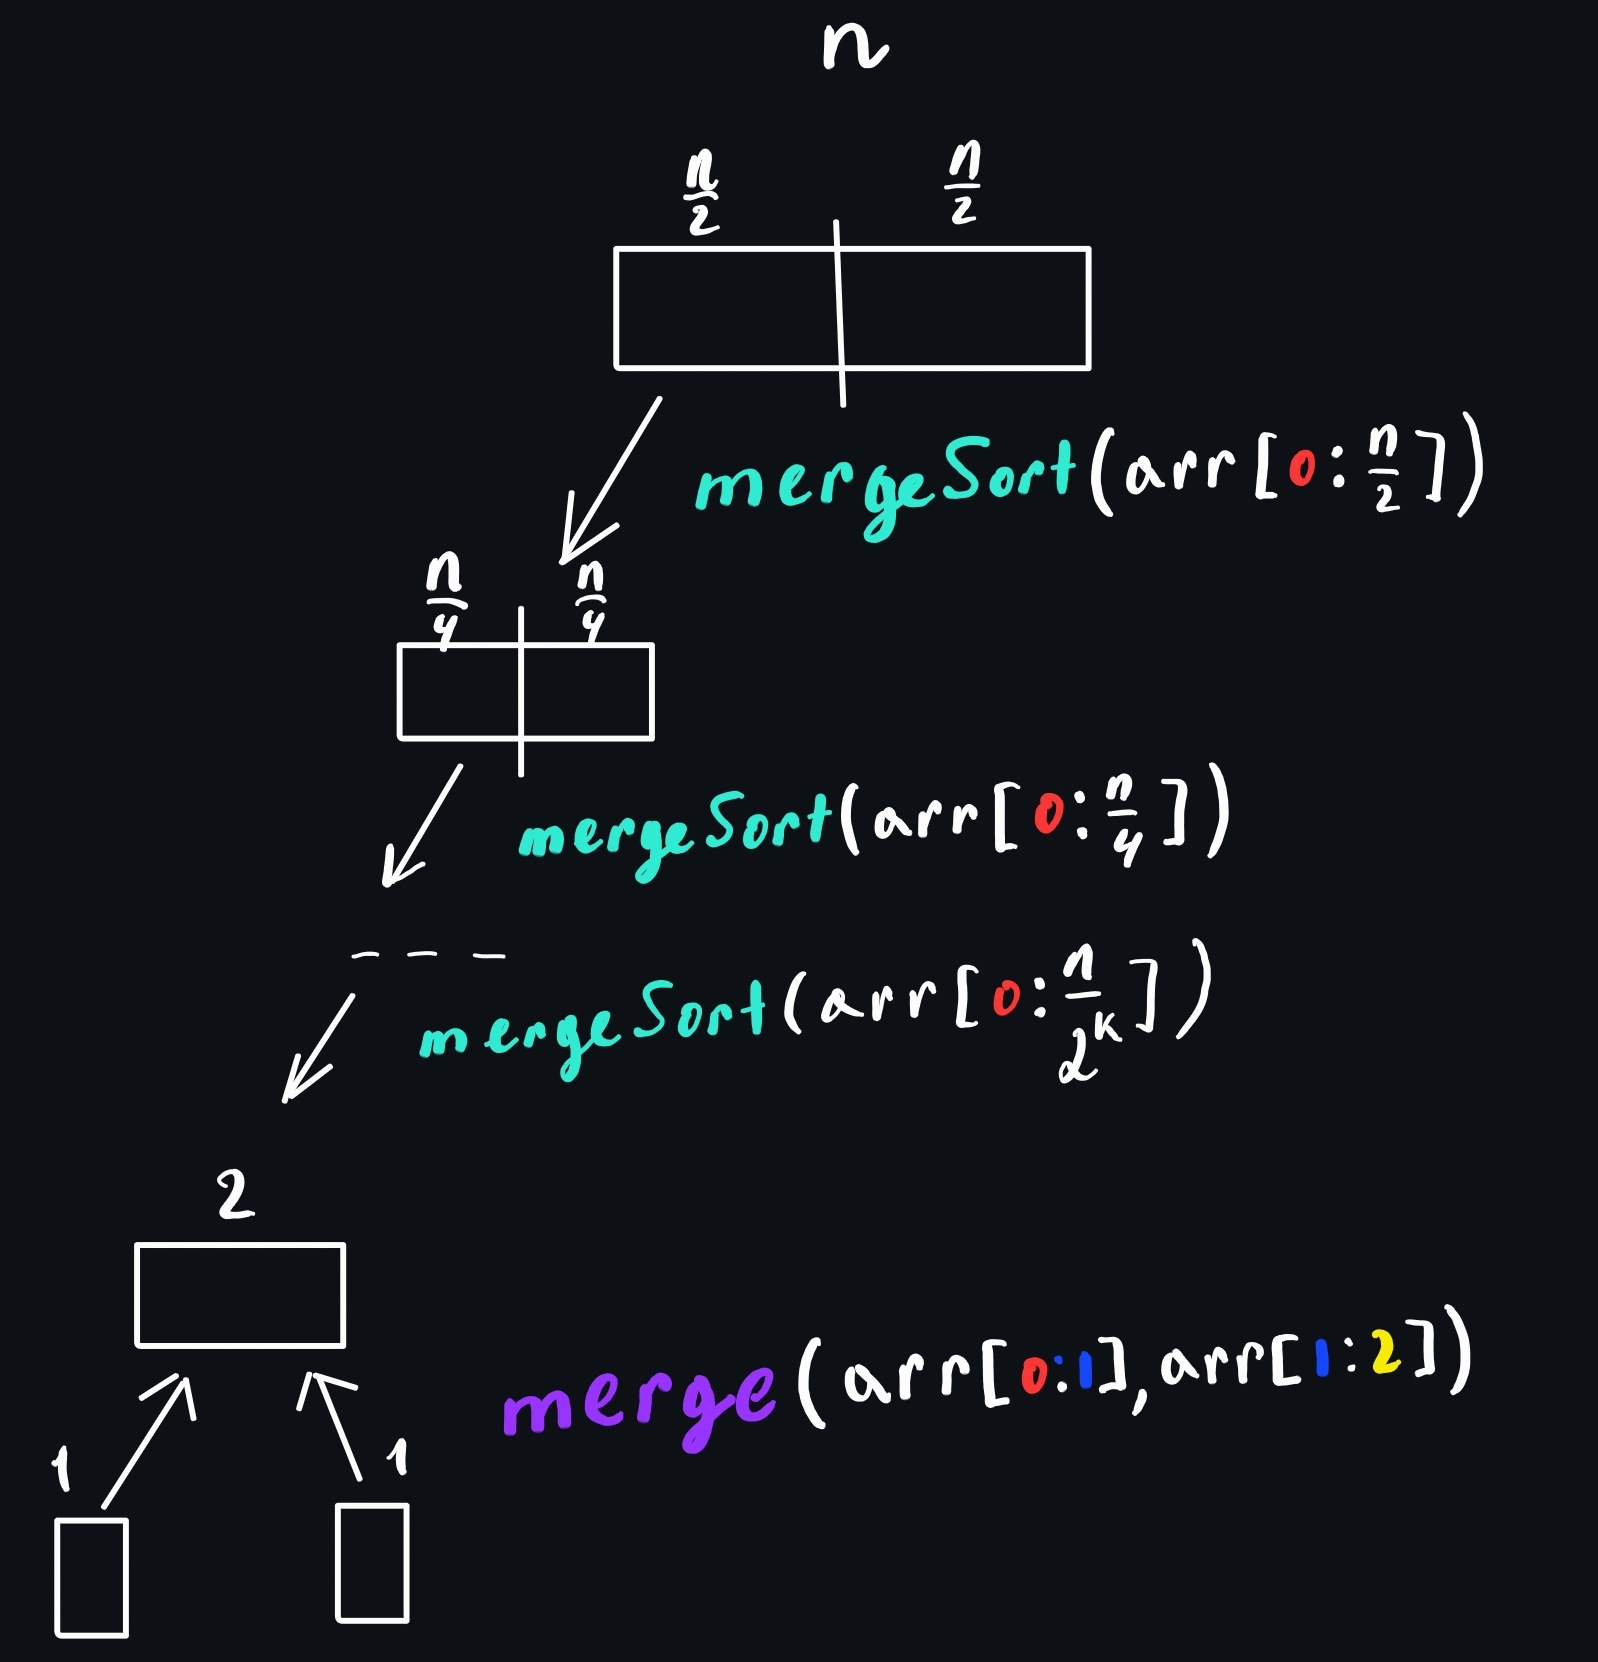 n
n/2 n/2
mergeSort(arr[0:n/2])
n/4 n/4
mergeSort(arr[0:n/4])
mergeSort(arr[0:n/2^k])
2
merge(arr[0:1],arr[1:2])
1 1